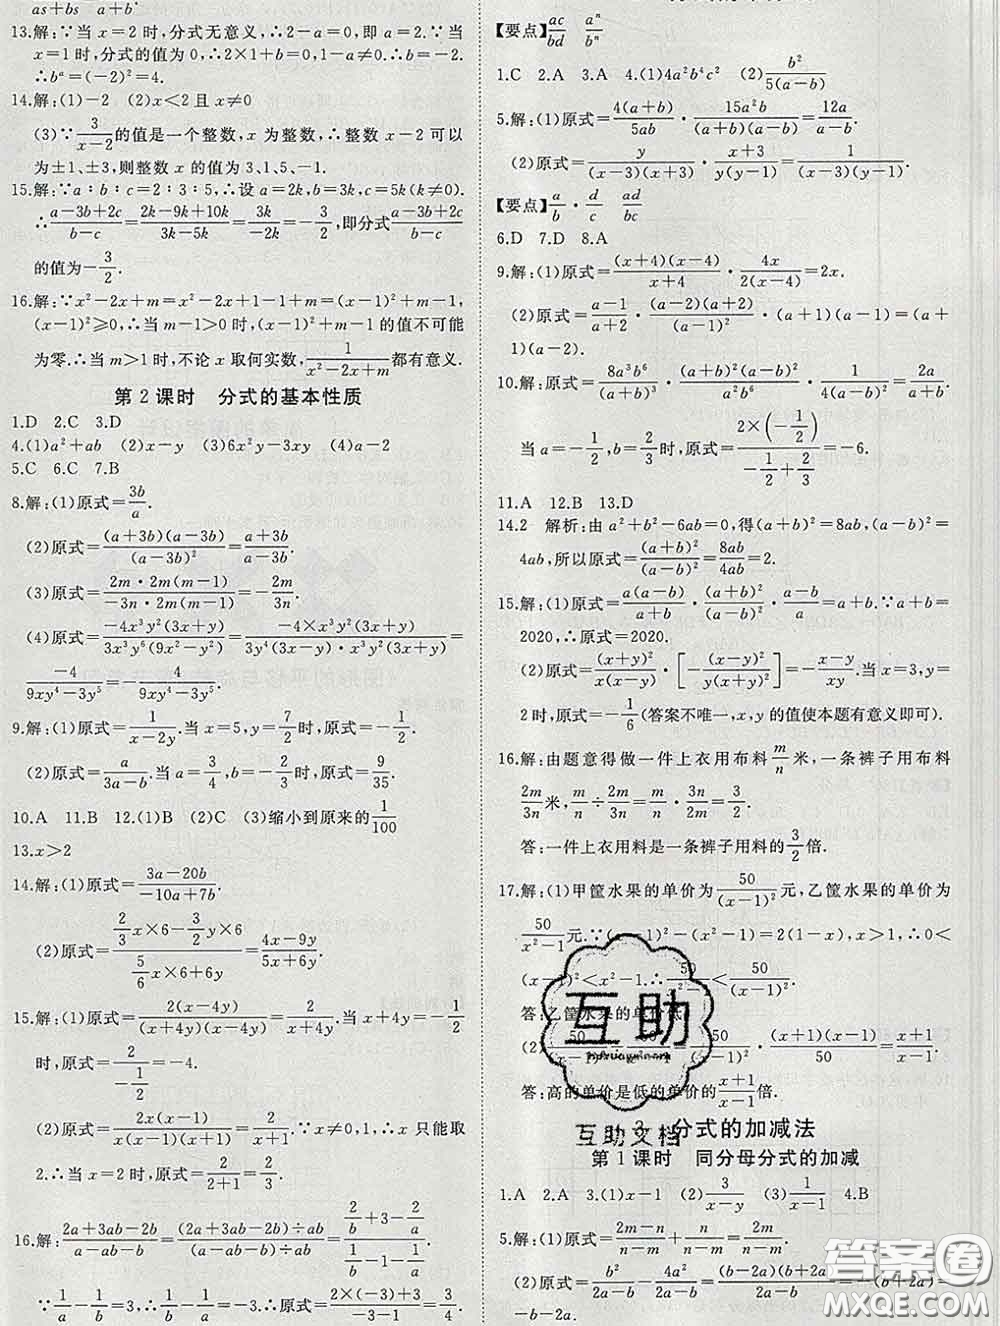 as+bs  a+b
13.解:∵当 x=2 时,分式无意义,∴2-a=0,即 a=2.∵当
x=1时,分式的值为0,∴2×1+b=0,∴b=-2.
∴bᵃ=(-2)²=4.
14.解:(1)-2 (2)x<2 且 x≠0
(3)∵3/(x-2)的值是一个整数,x 为整数,∴整数 x-2 可以
为±1、±3,则整数 x 的值为 3、1、5、-1.
15.解:∵a∶b∶c=2∶3∶5,∴设 a=2k,b=3k,c=5k(k≠0).
∴(a-3b+2c)/(b-c)=(2k-9k+10k)/(3k-5k)=3k/(-2k)=-3/2,即分式(a-3b+2c)/(b-c)
的值为-3/2.
16.解:∵x²-2x+m=x²-2x+1-1+m=(x-1)²+m-1,
(x-1)²≥0,∴当 m-1>0 时,(x-1)²+m-1 的值不可能
为零.∴当 m>1 时,不论 x 取何实数,1/(x²-2x+m)都有意义.
第 2 课时 分式的基本性质
1.D 2.C 3.D
4.(1)a²+ab (2)x-y (3)6x²-3xy (4)a-2
5.C 6.C 7.B
8.解:(1)原式=3b/a.
(2)原式=(a+3b)(a-3b)/(a-3b)²=(a+3b)/(a-3b).
(3)原式=2m·2m(m-1)/(-3n·2m(m-1))=-2m/3n.
(4)原式=-4x³y²(3x+y)/(3x³y⁶(9x²-y²))=-4×x³y²(3x+y)/(3y⁴(3x-y)(3x+y)·x³y²)=
-4/(9xy⁴-3y⁵)=-4/(9xy⁴-3y⁵).
9.解:(1)原式=1/(x-2y).当 x=5,y=7/2时,原式=-1/2.
(2)原式=a/(3a-b).当 a=3/4,b=-1/2时,原式=9/35.
10.A 11.B 12.(1)B (2)C (3)缩小到原来的1/100
13.x>2
14.解:(1)原式=(3a-20b)/(-10a+7b).
(2)原式=(2/3 x×6-3/2 y×6)/(5/6 x×6+6y)=(4x-9y)/(5x+6y).
15.解:(1)原式=2(x-4y)/((x+4y)(x-4y))=2/(x+4y).当 x+4y=-1/2
时,原式=2/(-1/2)=-4.
(2)原式=2x(x-1)/(x(x-1)(x+1))=2/(x+1).∵x≠0,±1,∴x 只能取
2.∴当 x=2 时,原式=2/(2+1)=2/3.
16.解:(2a+3ab-2b)/(a-ab-b)=(2a+3ab-2b)÷ab/((a-ab-b)÷ab)=(2/b+3-2/a)/(1/b-1-1/a).
∵1/b-1/a=-3,∴1/b-1/a=-3,∴原式=(2×(-3)+3)/(-3-1)=3/4.
【要点】ac/bd aⁿ/bⁿ
1.C 2.A 3.A 4.(1)4a²b⁴c² (2)b²/5(a-b)
5.解:(1)原式=4(a+b)/5ab·15a²b/((a+b)(a-b))=12a/(a-b).
(2)原式=y/((x-3)(x+3))·(x+3)/(y(y-1))=1/((x-3)(y-1)).
【要点】a/b·d/c ad/bc
6.D 7.D 8.A
9.解:(1)原式=(x+4)(x-4)/(x+4)·4x/2(x-4)=2x.
(2)原式=(a-1)/(a+2)·(a-2)(a+2)/(a-1)²·(a+1)(a-1)=(a+
1)(a-2).
10.解:原式=8a³b⁶/(a+b)³·(a+b)²(a-b)²/a²b⁶·1/(a-b)²=2a/(a+b).
当 a=-1/2,b=2/3时,原式=2×(-1/2)/(-1/2+2/3)=-6.
11.A 12.B 13.D
14.2 解析:由 a²+b²-6ab=0,得(a+b)²=8ab,(a-b)²=
4ab,所以原式=(a+b)²/(a-b)²=8ab/4ab=2.
15.解:(1)原式=a(a-b)/(a+b)·(a+b)²/(a-b)²·(a-b)/a=a+b.∵a+b=
2020,∴原式=2020.
(2)原式=(x+y)²/(x(x+y))·[-(x-y)²/(y(x+y))]=-(x-y)/xy.当 x=3,y=
2时,原式=-1/6(答案不唯一,x,y 的值使本题有意义即可).
16.解:由题意得做一件上衣用布料m/n米,一条裤子用布料
2m/3n米,m/n÷2m/3n=m/n·3n/2m=3/2.
答:一件上衣用料是一条裤子用料的3/2倍.
17.解:(1)甲筐水果的单价为50/(x-1)²元,乙筐水果的单价为
50/(x²-1)元.∵(x-1)²-(x²-1)=2(1-x),x>1,∴0<
(x-1)²<x²-1.∴50/(x²-1)<50/(x-1)².
答:乙筐水果的单价低.
(2)50/(x-1)²÷50/(x²-1)=50/(x-1)²·(x+1)(x-1)/50=(x+1)/(x-1).
答:高的单价是低的单价的(x+1)/(x-1)倍.
互助
互助文档
3 分式的加减法
第 1 课时 同分母分式的加减
1.A 2.A 3.(1)x-1 (2)3/(x-y) (3)1/(x-1) 4.B
5.解:(1)原式=(2m-n)/(n-m)+n/(n-m)=2m/(n-m).
(2)原式=b²/(2a-b)-4a²/(2a-b)=(b-2a)(b+2a)/(2a-b)=-(b+2a)=
-b-2a.
答案圈
MXQE.COM